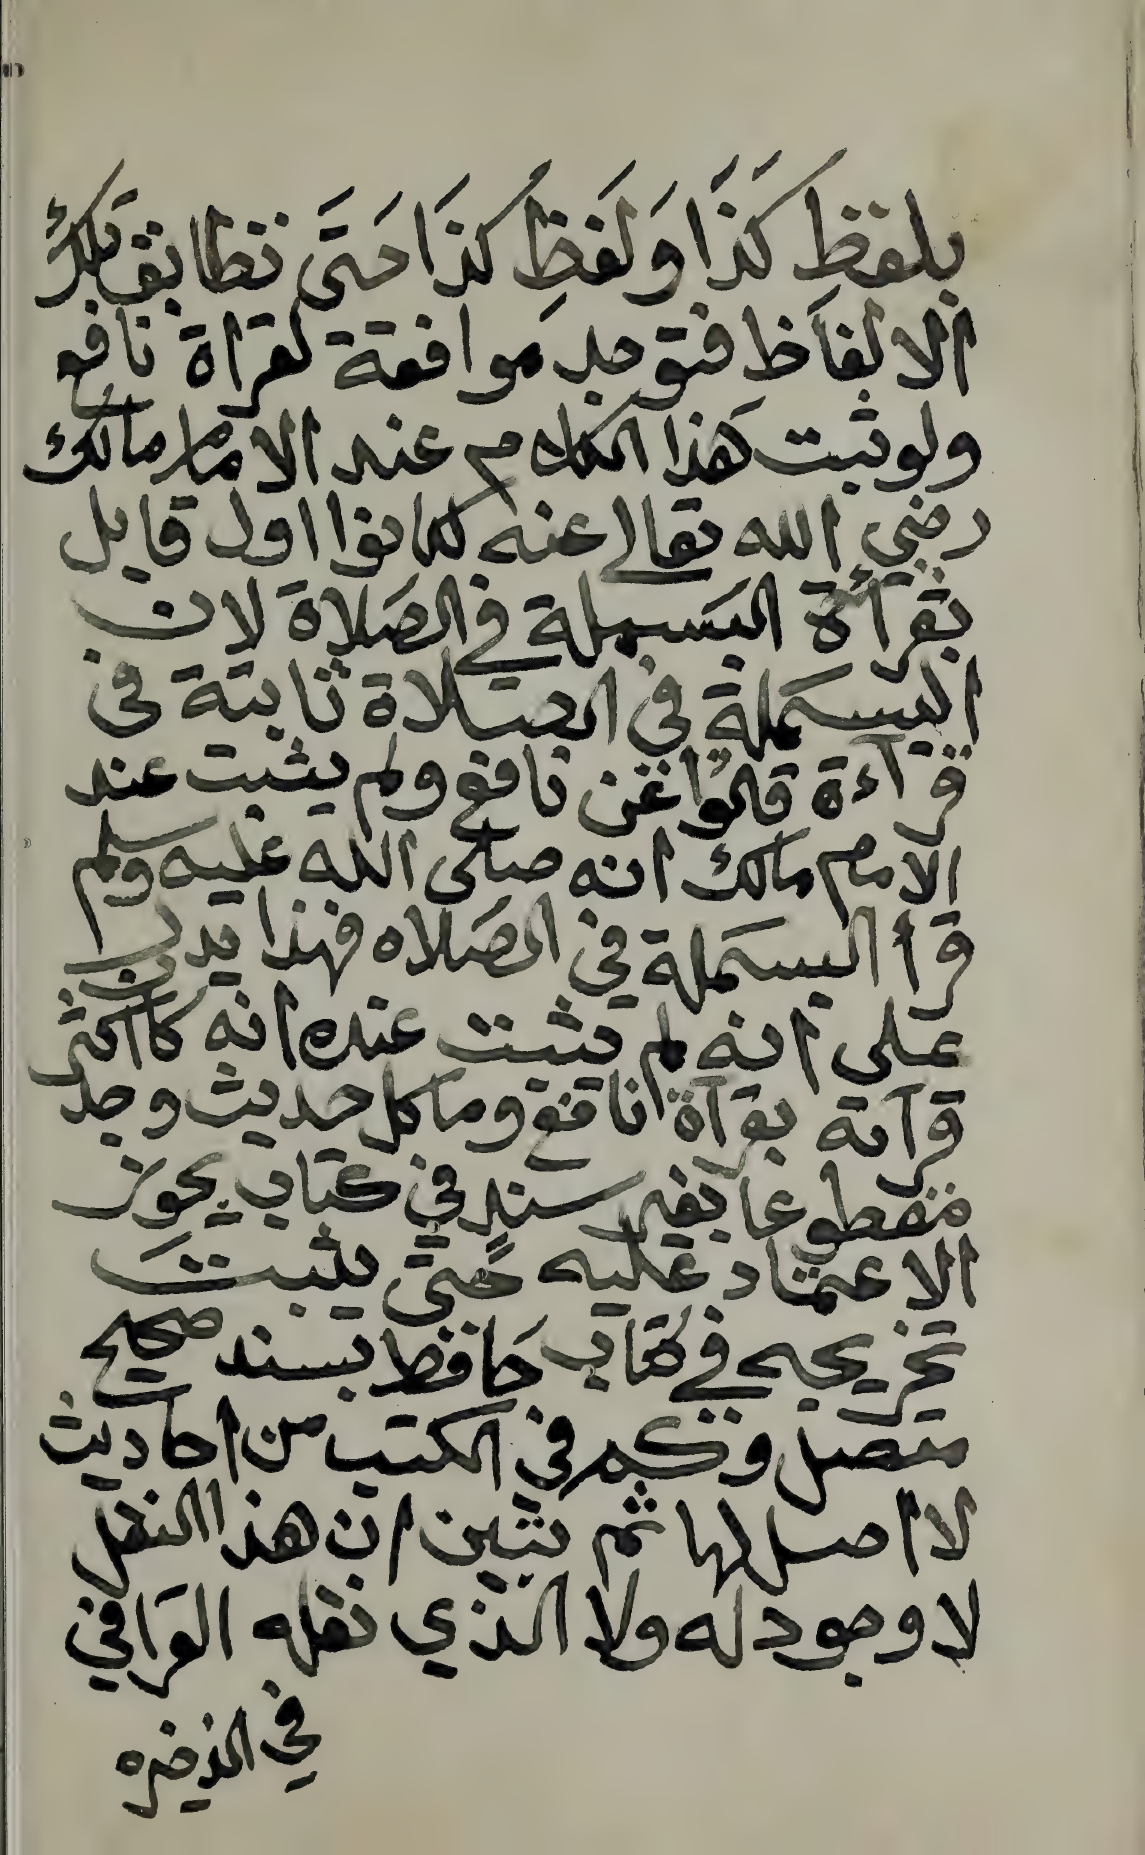 بلفظِ كَذَا وَلَفظِ كذَا حَتَّى نطابق تلك
الالفاظ فتوجد موافقة لقراة نافع
ولو ثبت هَذا الكلام عند الامام مالك
رضي الله تعالى عنه لكانوا اول قايل
بقرآءة البَسملة في الصَلاة لان
البسمَلة في الصلاة ثابتة في
قرآءة قالوا عن نافع ولم يثبت عند
الامام مالك انه صلى الله عليه وسلم
قرا البسمَلة في الصَلاه فهذا يدل
على انه لم يثبت عنده انه كان اكثر
قرآته بقرآة نافع وما كل حديث وجد
مقطوعا بغير سند في كتاب يجوز
الاعتماد عليه حتى يثبتَ
تخريجه في كتاب حَافظ بسند صحيح
متصل وكم في الكتب من احاديث
لا اصل لها ثم تبين ان هذا النقل
لا وجود له ولا الذي نقله القرَافي
في الذخيره